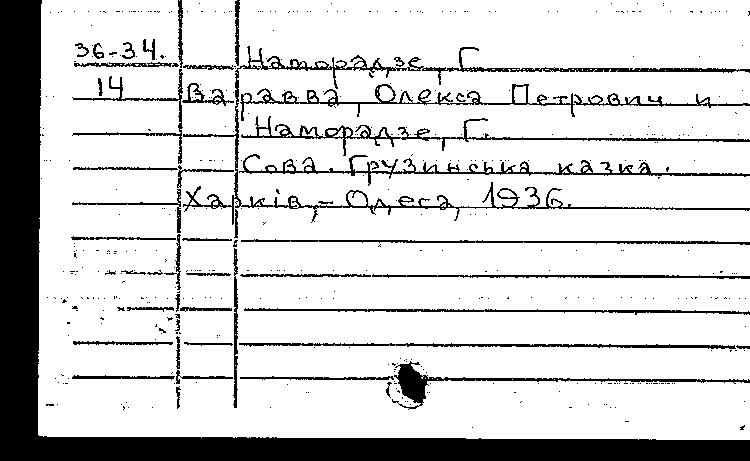 36-34. Наморадзе, Г.
14 Варавва, Олекса Петрович и
Наморадзе, Г.
Сова. Грузинська казка.
Харкiв,- Одеса, 1936.